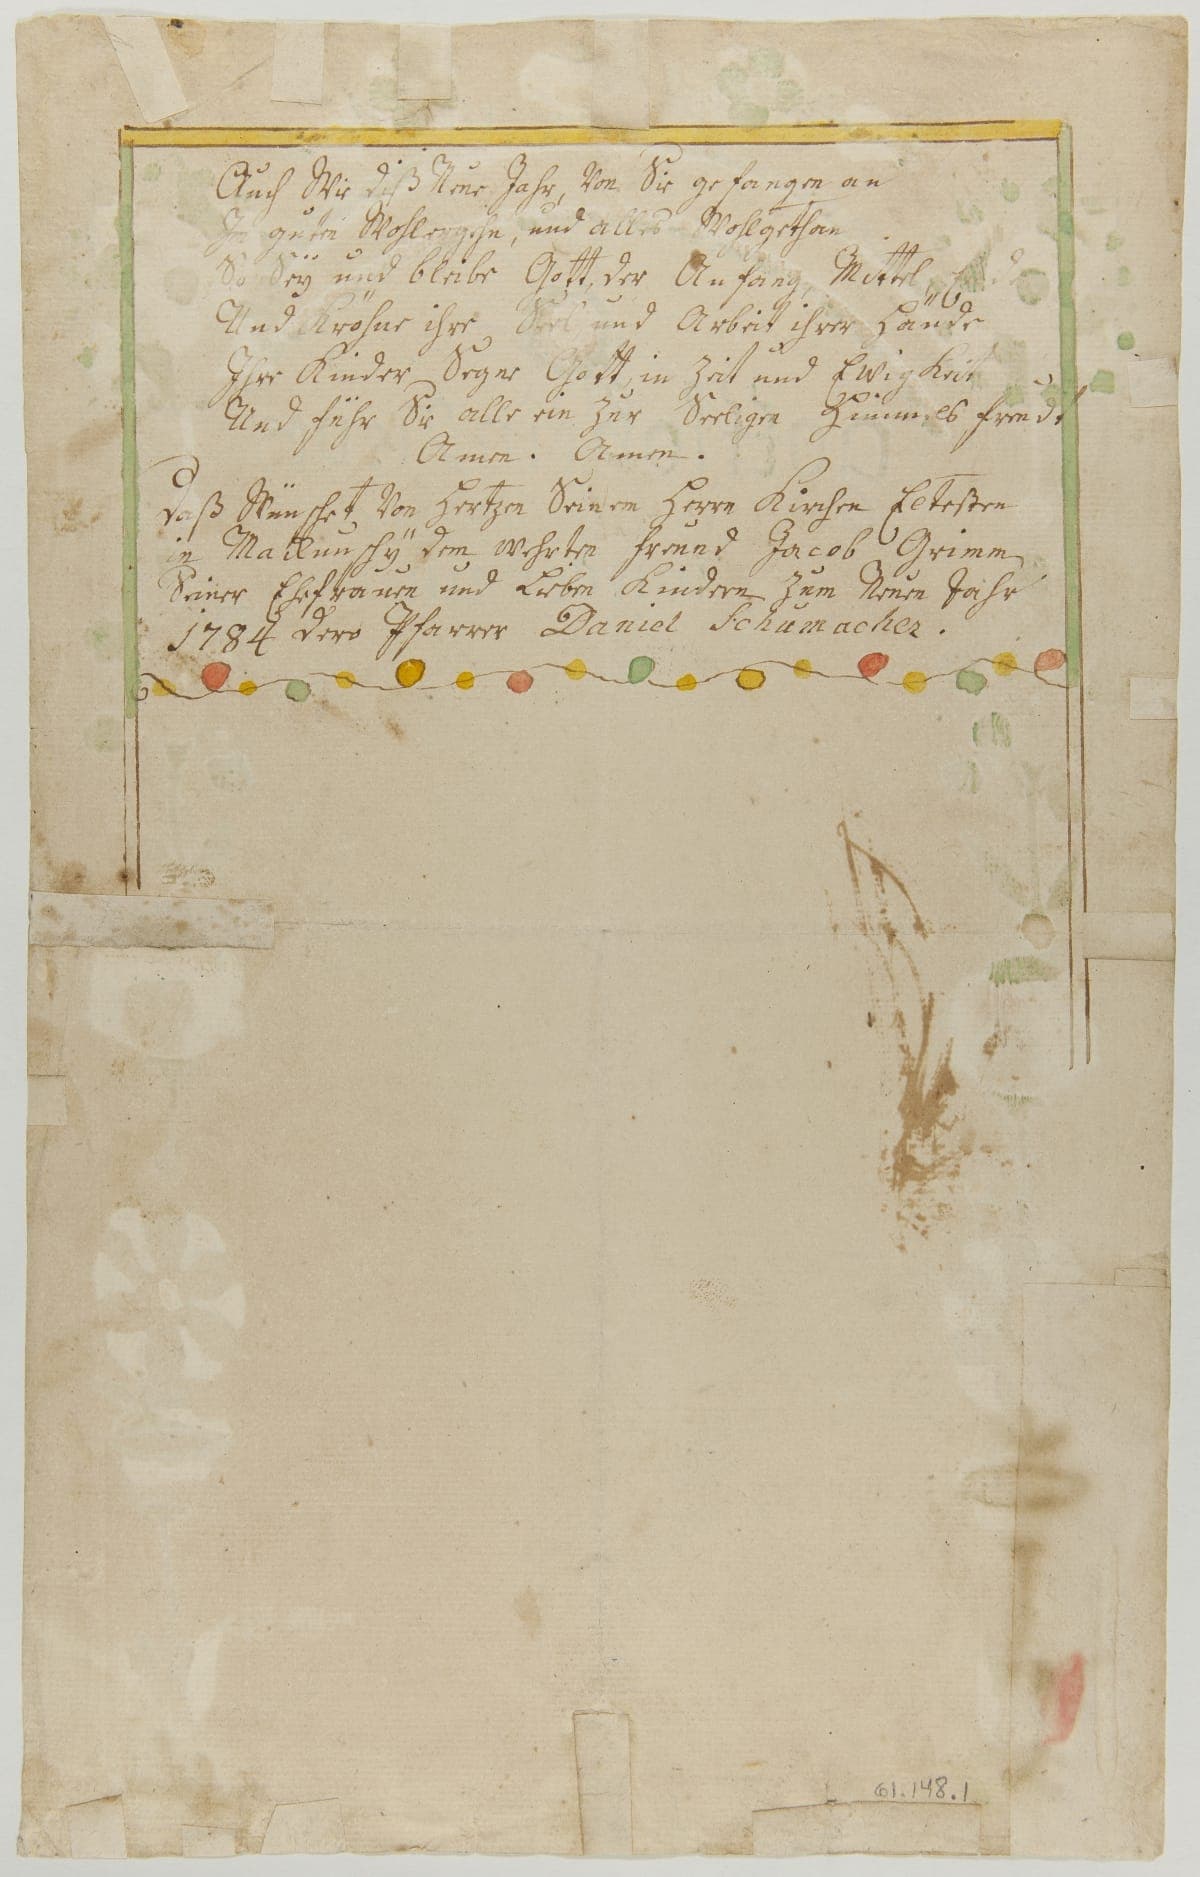 Auch Wie diß Neue Jahr, Von Sie gefangen an
In guten Wohlergehn, und alles Wohlgethan
So Seÿ und bleibe Gott, der Anfang, Mittel, Ende
Und Kröhne ihre Seel und Arbeit ihrer Hände
Ihre Kinder Segne Gott, in Zeit und Ewigkeit
Und führ Sie alle ein zur Seeligen Himmels freud.
Amen. Amen.
Daß Wünschet Von Hertzen Seinem Herrn Kirchen Eltesten
in Mackunschÿ dem wehrten freund Jacob Grimm
Seiner Ehefrauen und Lieben Kindern zum Neuen Jahr
1784 dero Pfarrer Daniel Schumacher.
61.148.1